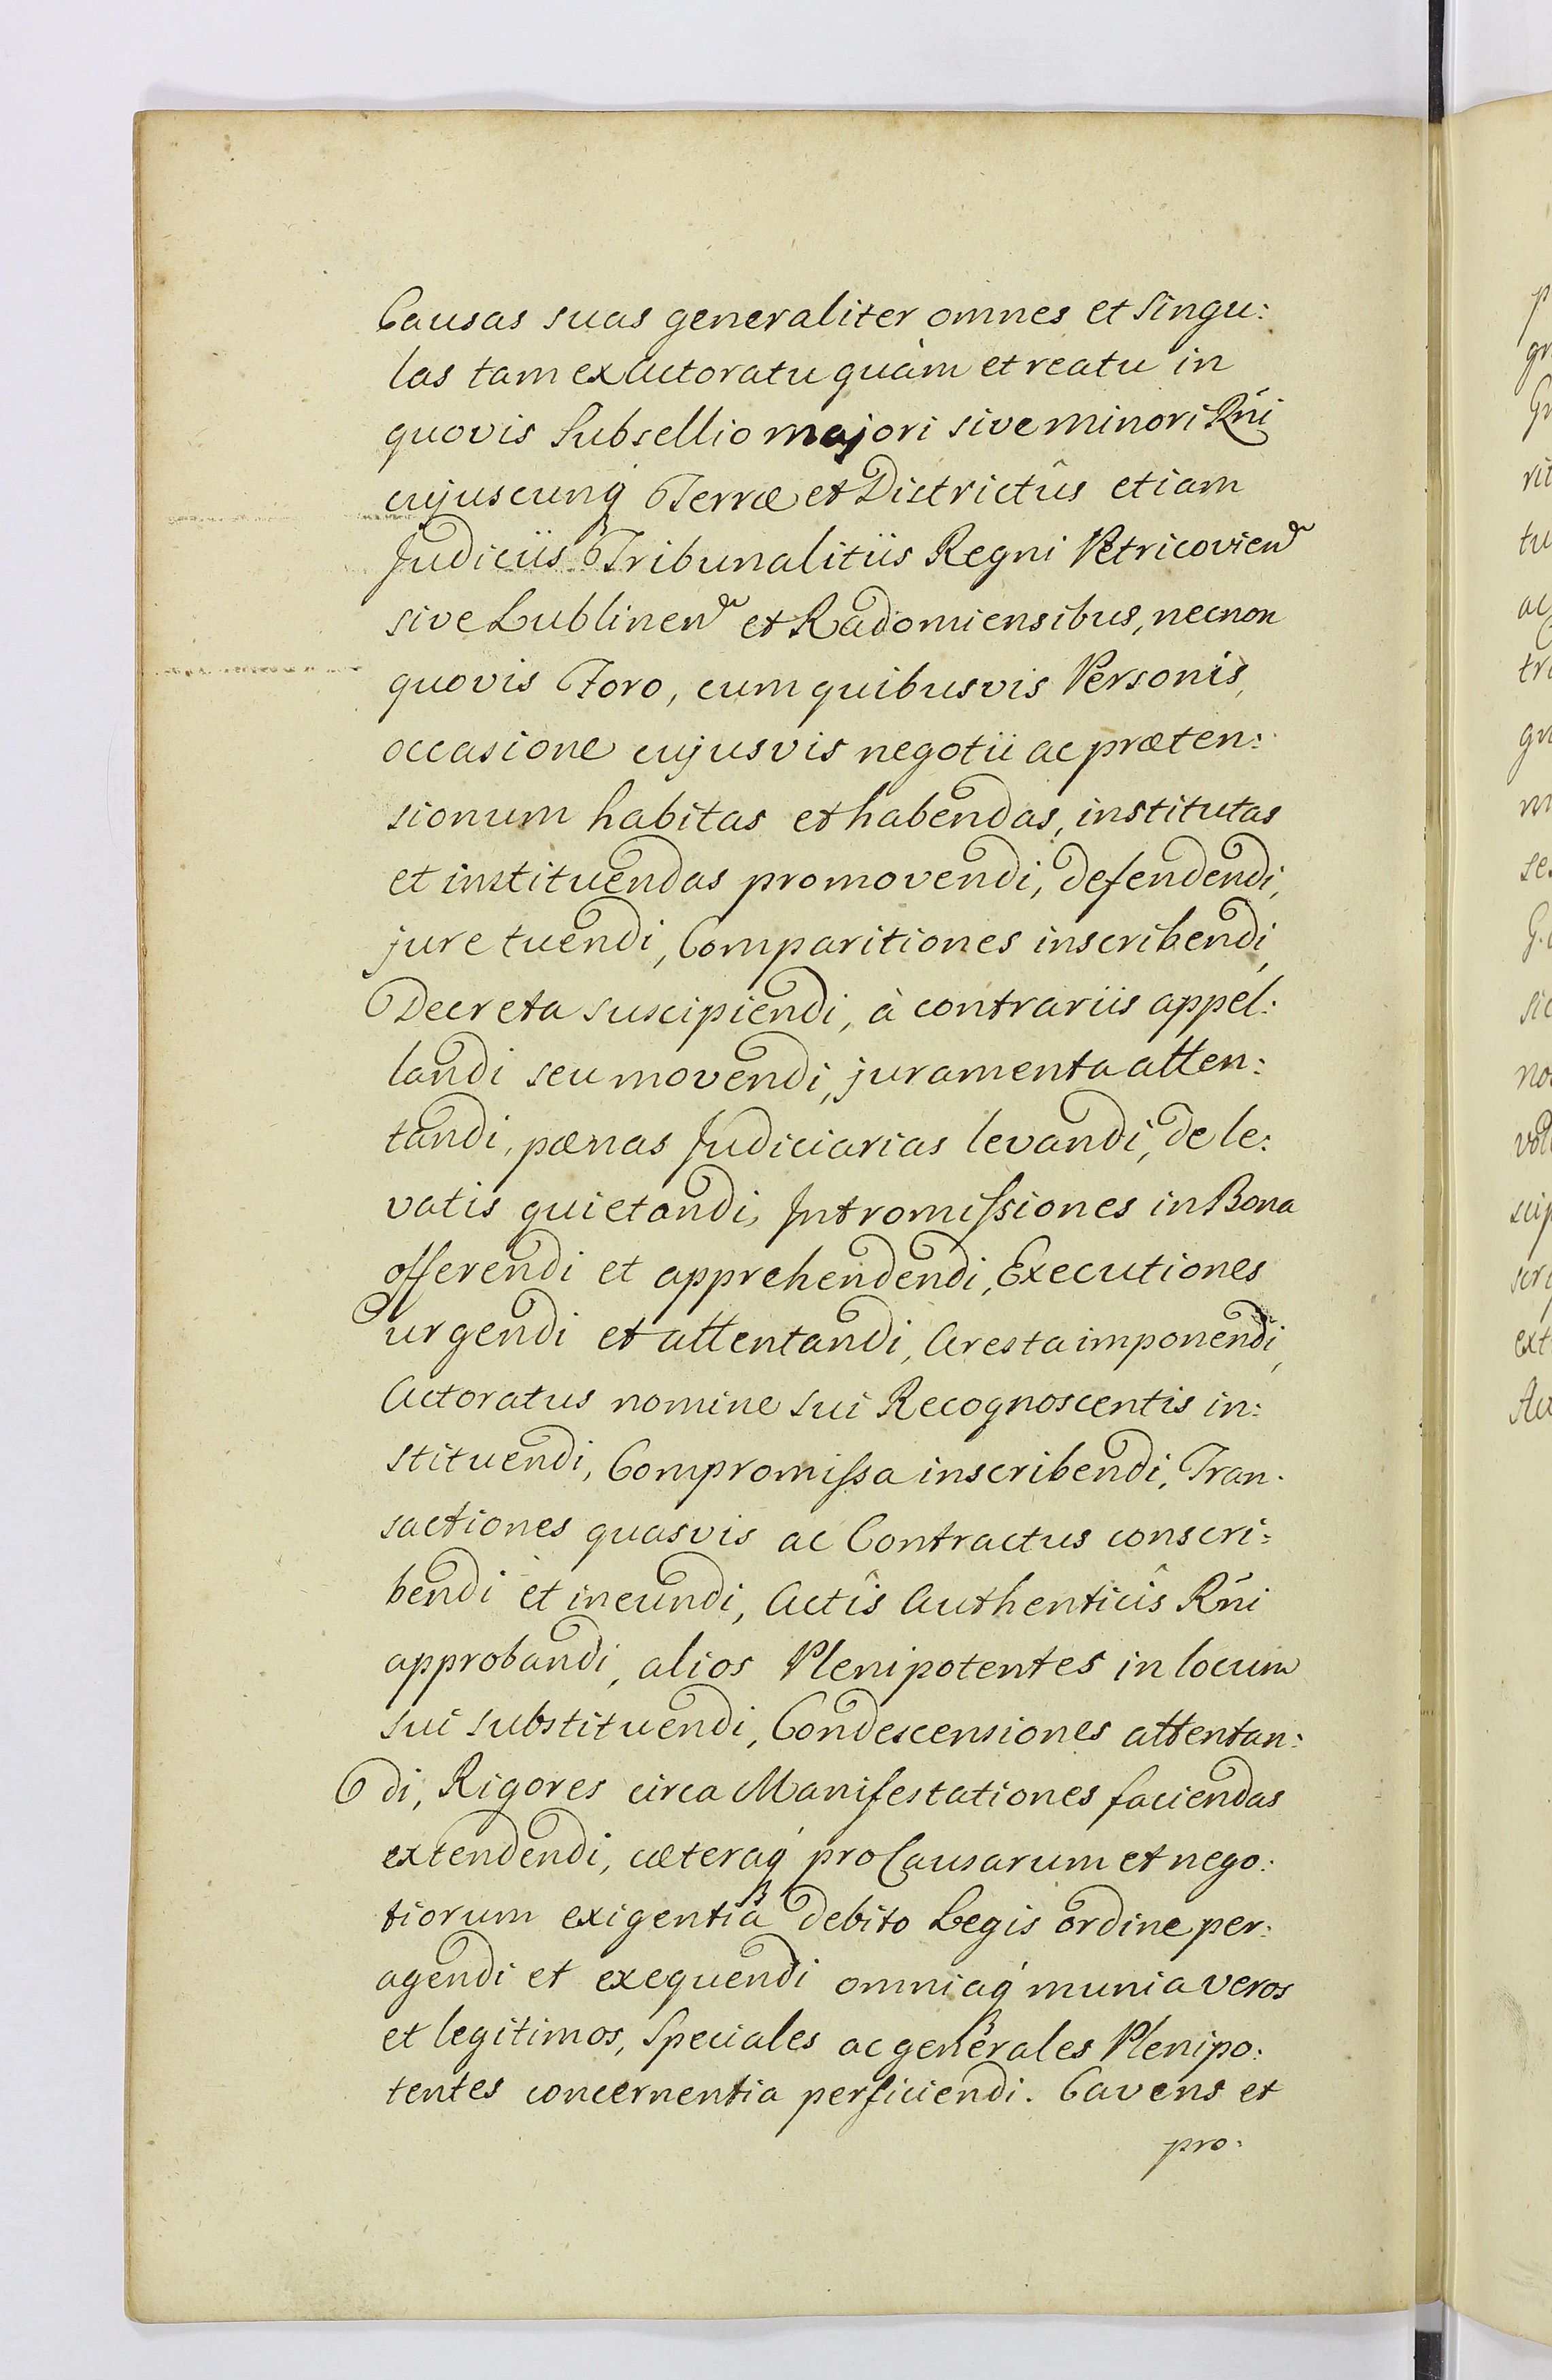 Causas suas generaliter omnes et singu:
las tam ex Actoratu quàm et reatu in
quovis Subsellio majori sive minori Rńi
cujuscunq́ Terræ et Districtûs etiam
Judiciis Tribunalitiis Regni Petricovien
sive Lublinen et Radomiensibus, necnon
quovis Foro, cum quibusvis Personis,
occasione cujusvis negotii ac præten:
sionum habitas et habendas, institutas
et instituendas promovendi, defendendi,
jure tuendi, Comparitiones inscribendi,
Decreta suscipiendi, à contrariis appel:
landi seu movendi, juramenta atten:
tandi, pœnas Judiciarias levandi, de le:
vatis quietandi, Intromiſsiones in Bona
offerendi et apprehendendi, Executiones
urgendi et attentandi, Aresta imponendi,
Actoratus nomine sui Recognoscentis in:
stituendi, Compromiſsa inscribendi, Tran:
sactiones quasvis ac Contractus conscri:
bendi et ineundi, Actîs Authenticîs Rńi
approbandi, alios Plenipotentes in locum
sui substituendi, Condescensiones attentan:
di, Rigores circa Manifestationes faciendas
extendendi, cæteraq́ pro Causarum et nego:
tiorum exigentiâ debito Legis ordine per:
agendi et exequendi omniaq́ munia veros
et legitimos, Speciales ac generales Plenipo:
tentes concernentia perficiendi. Cavens et
pro: